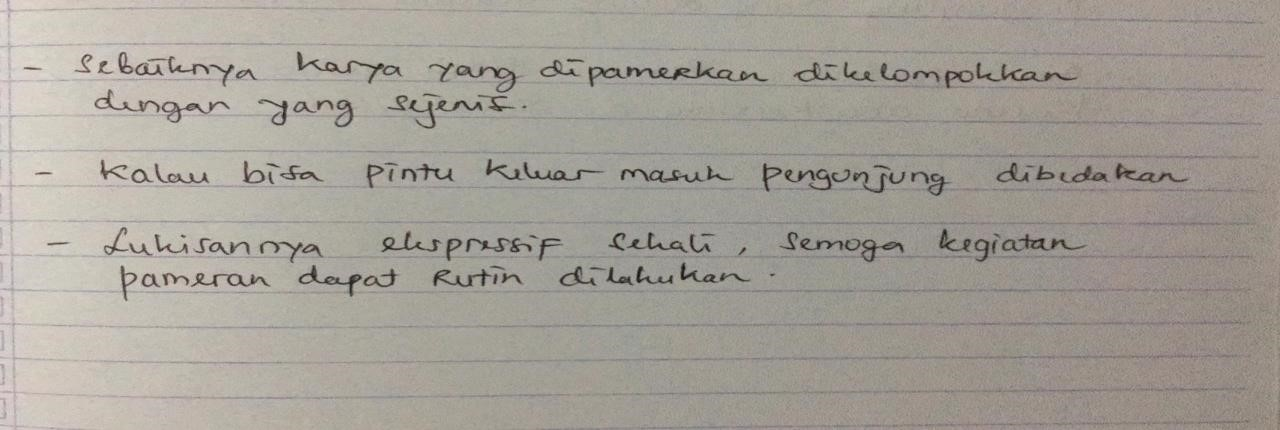 - Sebaiknya karya yang dipamerkan dikelompokkan
dengan yang sejenis.
- Kalau bisa pintu keluar masuk pengunjung dibedakan
- Lukisannya ekspressif sekali, semoga kegiatan
pameran dapat rutin dilakukan.